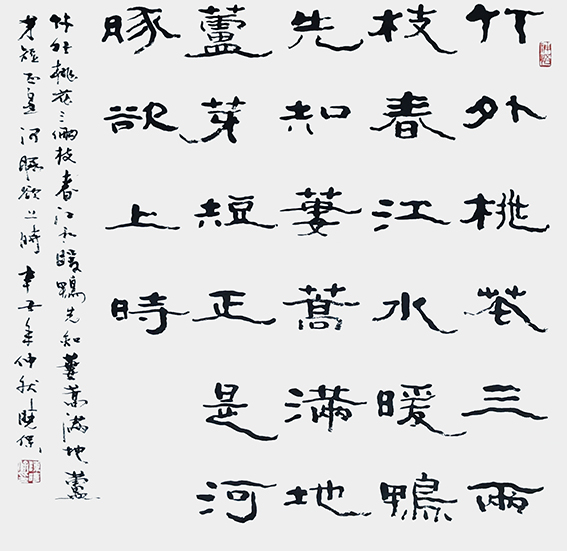 竹外桃花三兩
枝春江水暖鴨
先知蔞蒿滿地
蘆芽短正是河
豚欲上時
竹外桃花三兩枝春江水暖鴨先知蔞蒿滿地蘆
芽短正是河豚欲上時 辛丑年仲秋